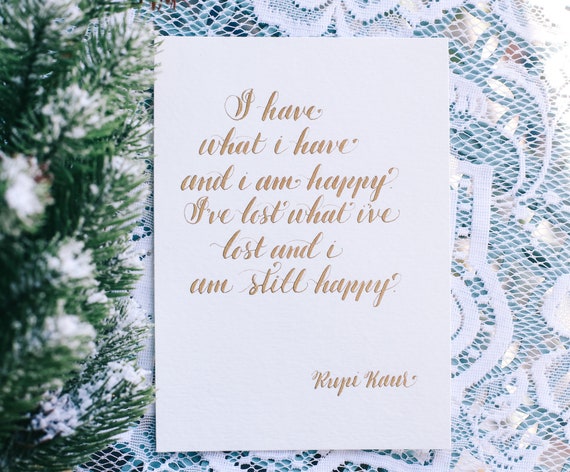 I have
what i have
and i am happy.
I've lost what i've
lost and i
am still happy.
Rupi Kaur